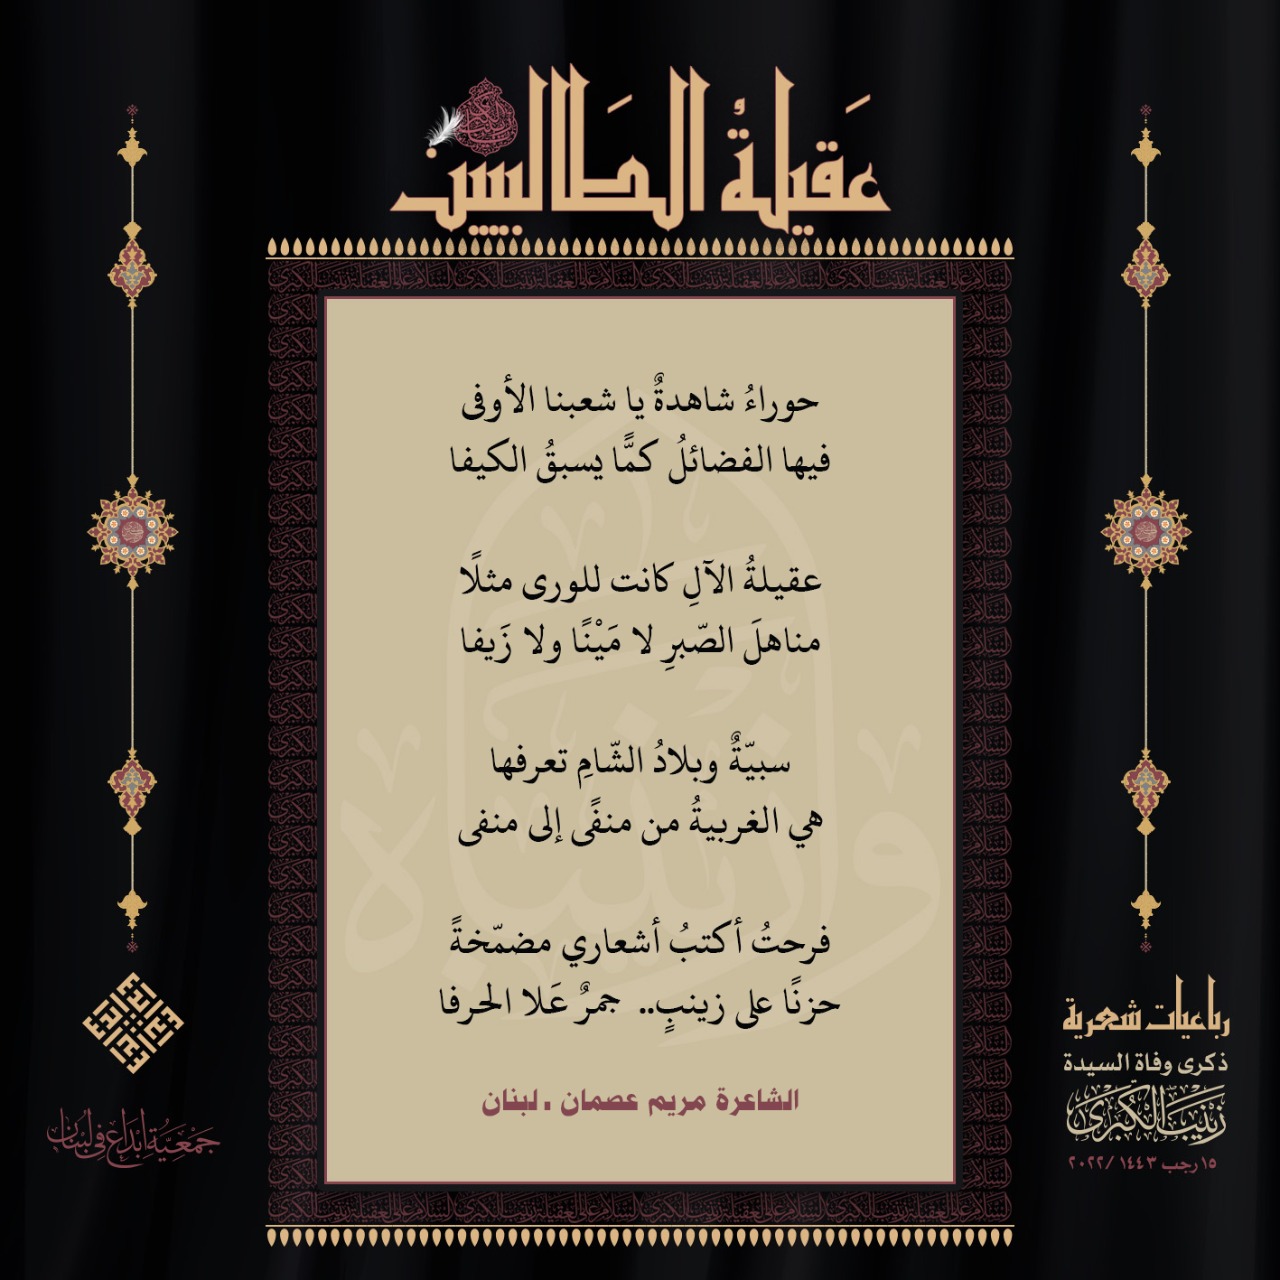 عقيلةُ الطَالبيين
حوراءُ شاهدةٌ يا شعبنا الأوفى
فيها الفضائلُ كمًّا يسبقُ الكيفا
عقيلةُ الآلِ كانت للورى مثلًا
مناهلَ الصّبرِ لا مَيْنًا ولا زَيفا
سبيّةٌ وبلادُ الشّامِ تعرفها
هي الغريبةُ من منفًى إلى منفى
فرحتُ أكتبُ أشعاري مضمّخةً
حزنًا على زينبٍ.. جمرٌ عَلا الحرفا
الشاعرة مريم عصمان . لبنان
رباعيات شعرية
ذكرى وفاة السيدة
زَيْنَبَ الْكُبْرَىٰ
١٥ رجب ١٤٤٣ /٢٠٢٢
جَمْعِيَّةُ إبْدَاع فِي لُبْنَان